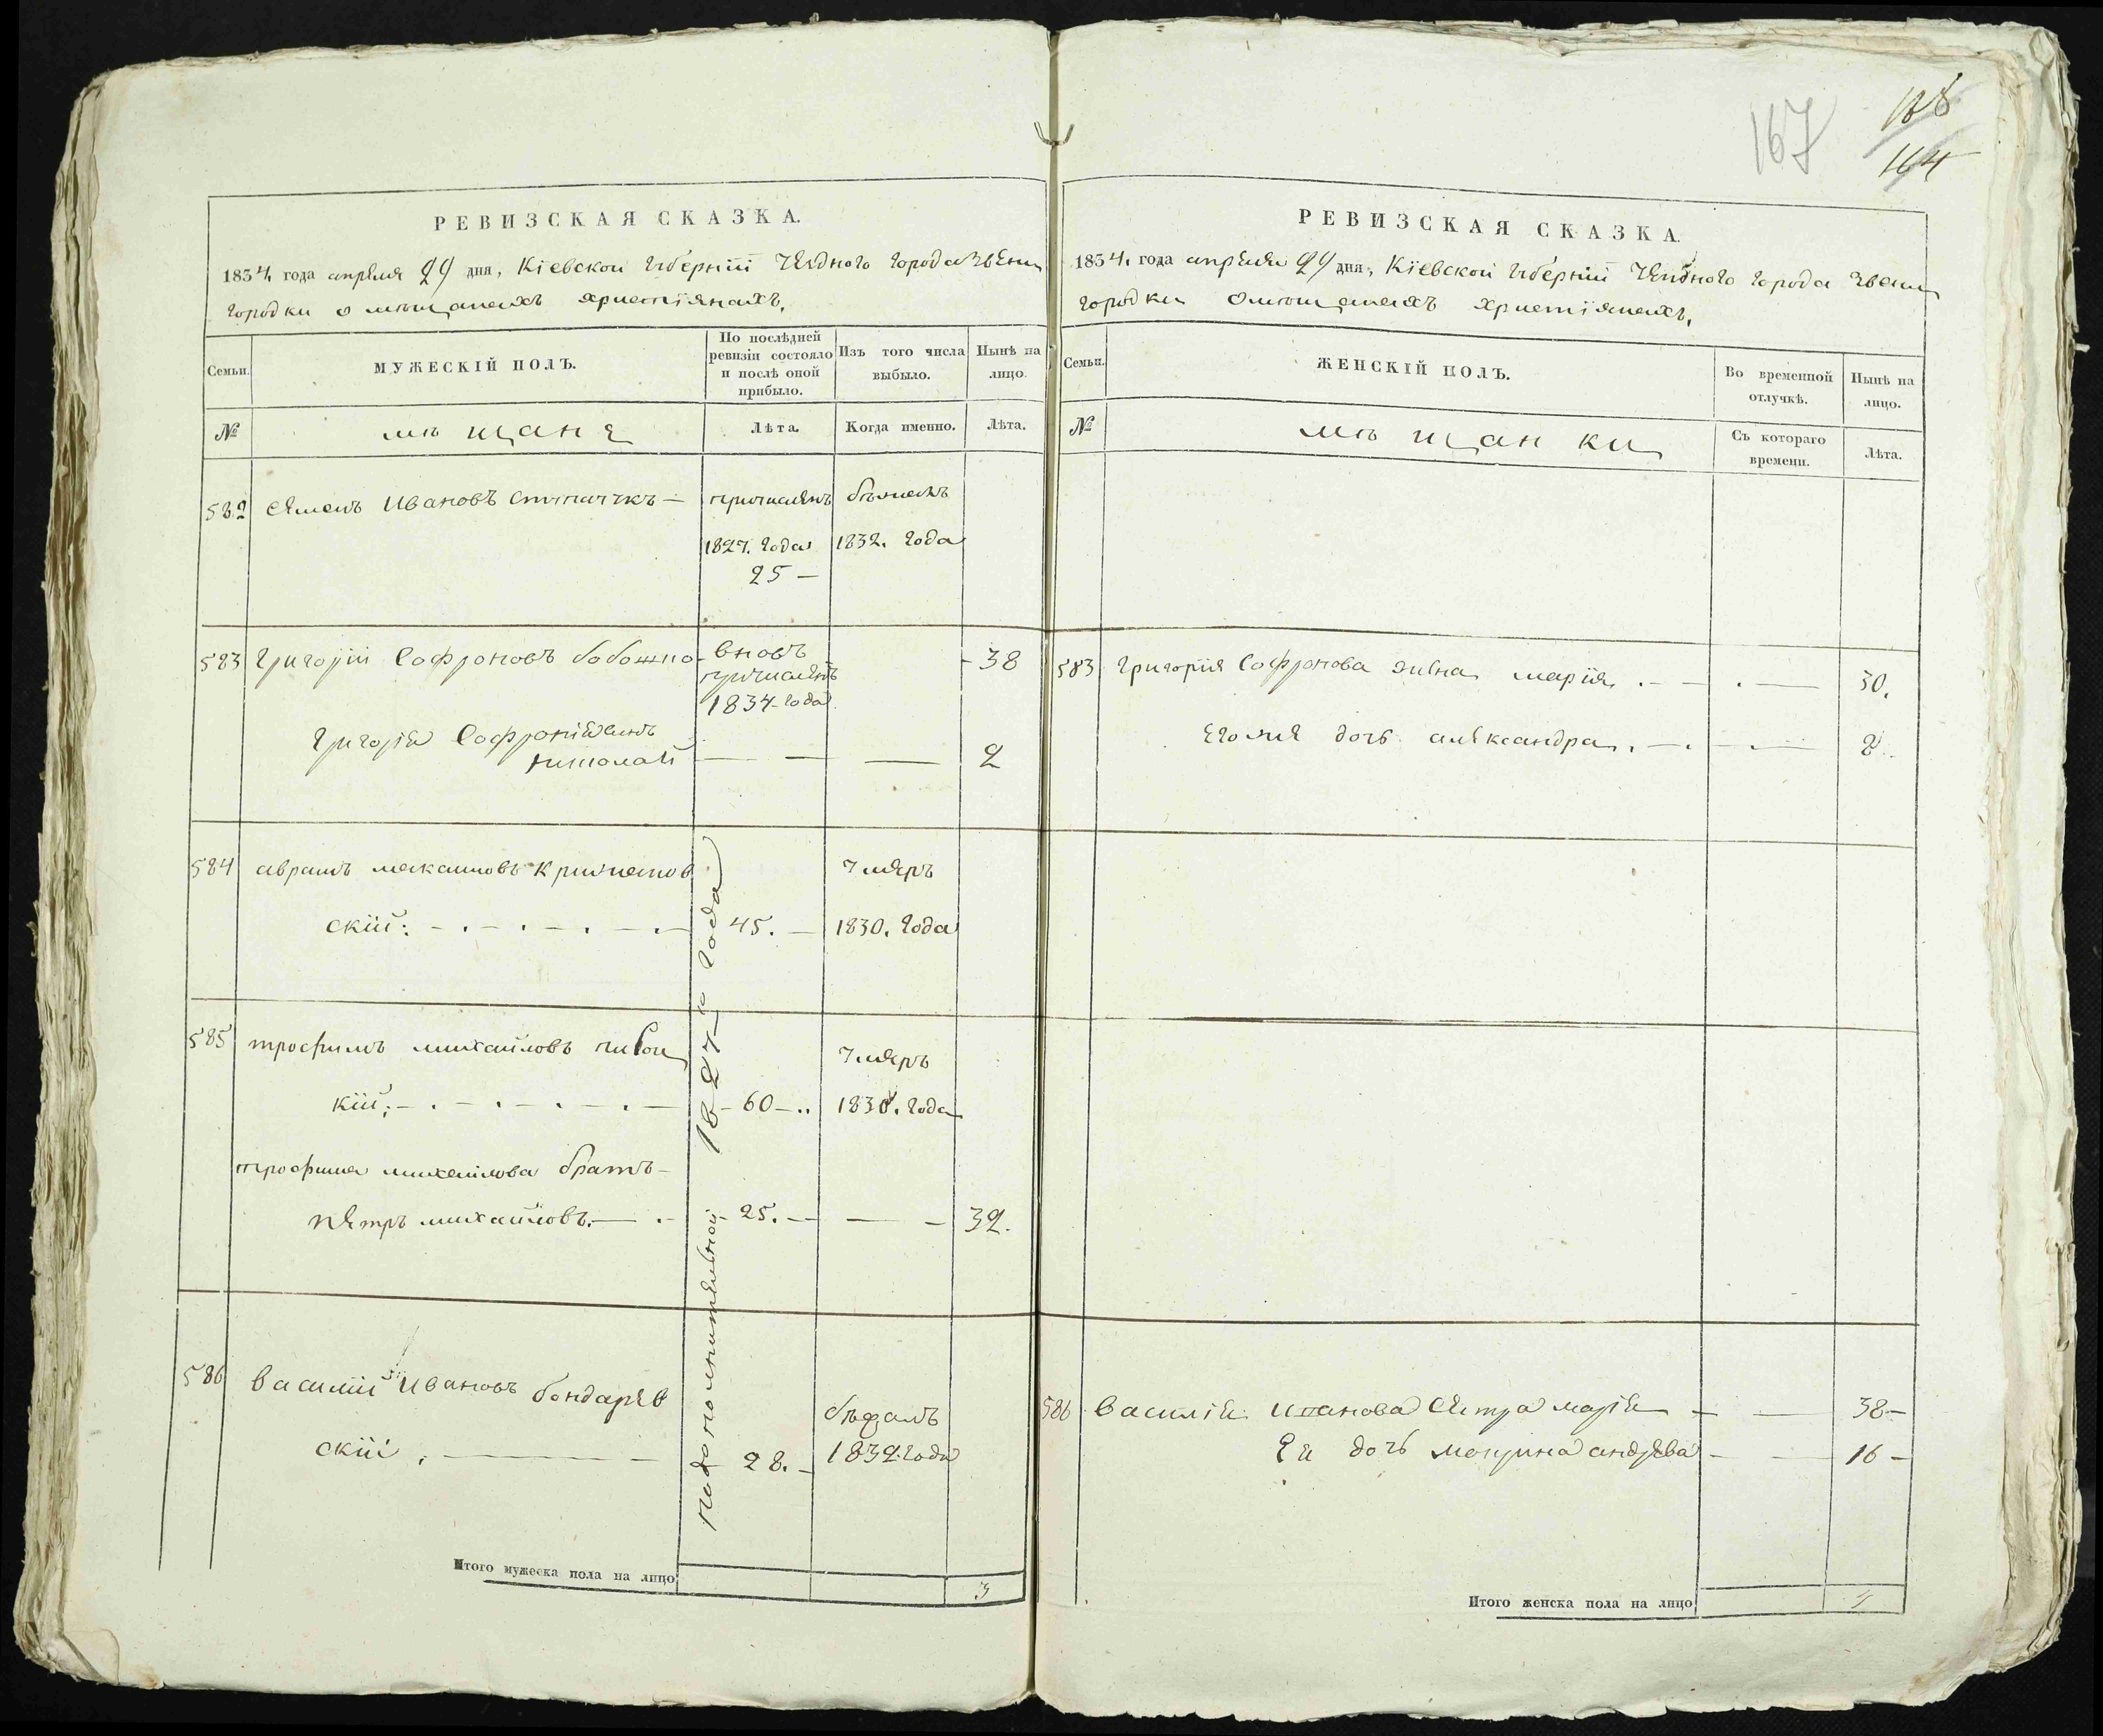 167
168
164
РЕВИЗСКАЯ СКАЗКА.
1834. года апреля 29 дня, Кіевской губерніи уездного города Звени
городки о мещанехъ христіянахъ.
Семьи.
МУЖЕСКІЙ ПОЛЪ.
По послѣдней ревизіи состояло и послѣ оной прибыло.
Изъ того числа выбыло.
Нынѣ на лицо.
№
мещане
Лѣта.
Когда именно.
Лѣта.
582 Семенъ Ивановъ — причисленъ 1827. года 25 —
1832. года
583 Григорій Софроновъ — вновъ причисленъ 1834 года — 38
Григорія Софроніева сынъ
николай — — — 2
584 аврамъ
скій. 45. — умеръ 1830. года
585 трофимъ михайловъ
кій. — 60 — умеръ 1830. года
трофима михайлова братъ —
Петръ михайловъ. — 25. — — 32.
586 Василій Ивановъ бондарев
скій. — 28. — 1832. года
по дополнительной 1827 года
Итого мужеска пола на лицо 3
РЕВИЗСКАЯ СКАЗКА
1834. года апреля 29 дня, Кіевской губерніи уездного города Звени
городки о мещанехъ христіянехъ.
Семьи.
ЖЕНСКІЙ ПОЛЪ.
Во временной отлучкѣ.
Нынѣ на лицо.
№
мещанки
Съ котораго времени.
Лѣта.
583 Григорія Софронова жена марія. — — 30.
Его же дочь александра. — — 2.
586 Василія Иванова сестра марія — — 38 —
Ея дочь андреева — — 16 —
Итого женска пола на лицо 4